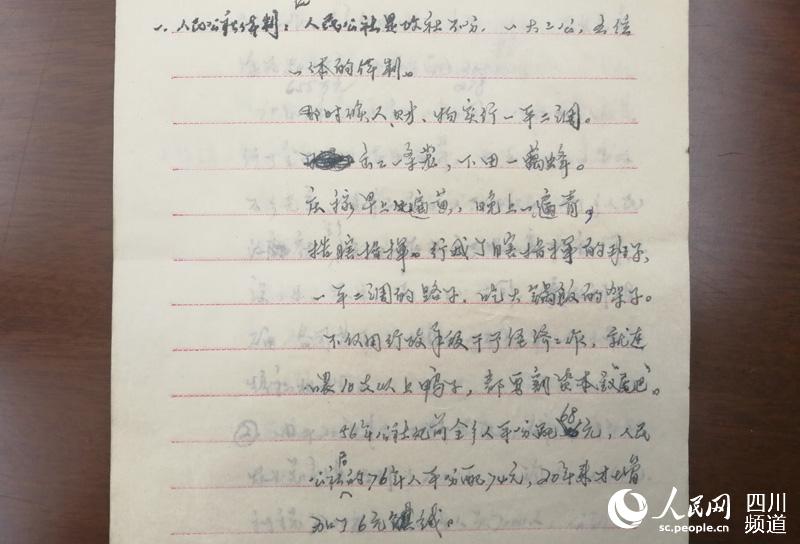 一、人民公社体制：人民公社是政社不分，一大二公，五位
一体的体制。
那时候人、财、物实行一平二调。
出工一条龙，下田一窝蜂。
庄稼早上一遍黄，晚上一遍青，
搞瞎指挥。行成了瞎指挥的班子，
一平二调的路子，吃大锅饭的架子。
不仅用行政手段干予经济工作，就连
喂10支以上鸭子，都要割资本主义尾巴。
②
56年公社化前全乡人平分配68元，人民
公社后的76年人平分配74元，20年来才增
加了6元钱。
人民网 四川频道
sc.people.com.cn